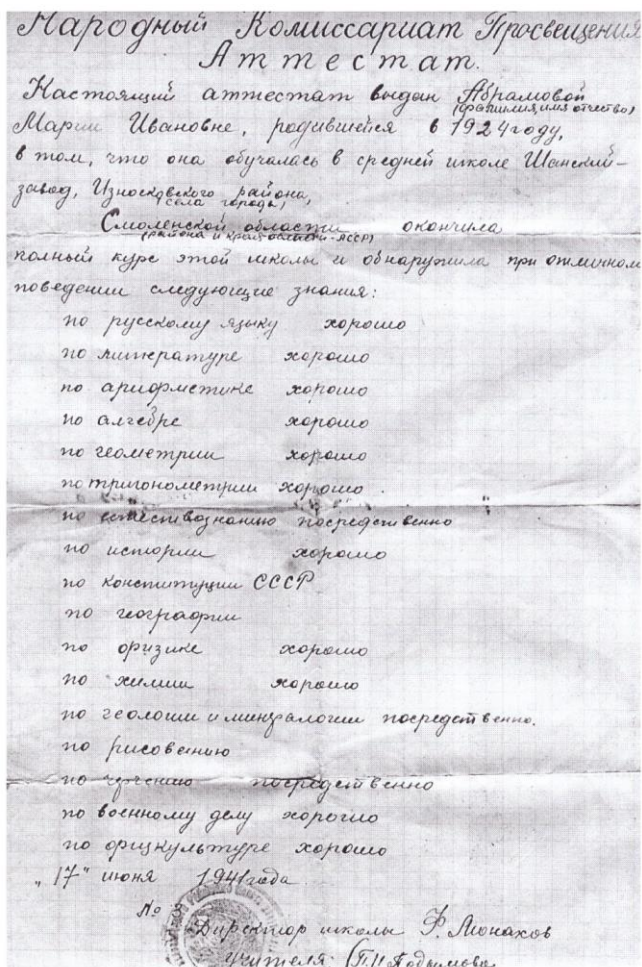 Народный Комиссариат Просвещения
Аттестат.
Настоящий аттестат выдан Абрамовой
(фамилия, имя отчество)
Марии Ивановне, родившейся в 1924 году,
в том, что она обучалась в средней школе Шанский-
завод, Износковского района,
(села города)
Смоленской области окончила
(района и края области - АССР)
полный курс этой школы и обнаружила при отличном
поведении следующие знания:
по русскому языку хорошо
по литературе хорошо
по арифметике хорошо
по алгебре хорошо
по геометрии хорошо
по тригонометрии хорошо.
по естествознанию посредственно
по истории хорошо
по конституции СССР
по географии
по физике хорошо
по химии хорошо
по геологии и минералогии посредственно.
по рисованию
по черчению посредственно
по военному делу хорошо
по физкультуре хорошо
"17" июня 1941 года
№
Директор школы Ф. Монахов
Учителя